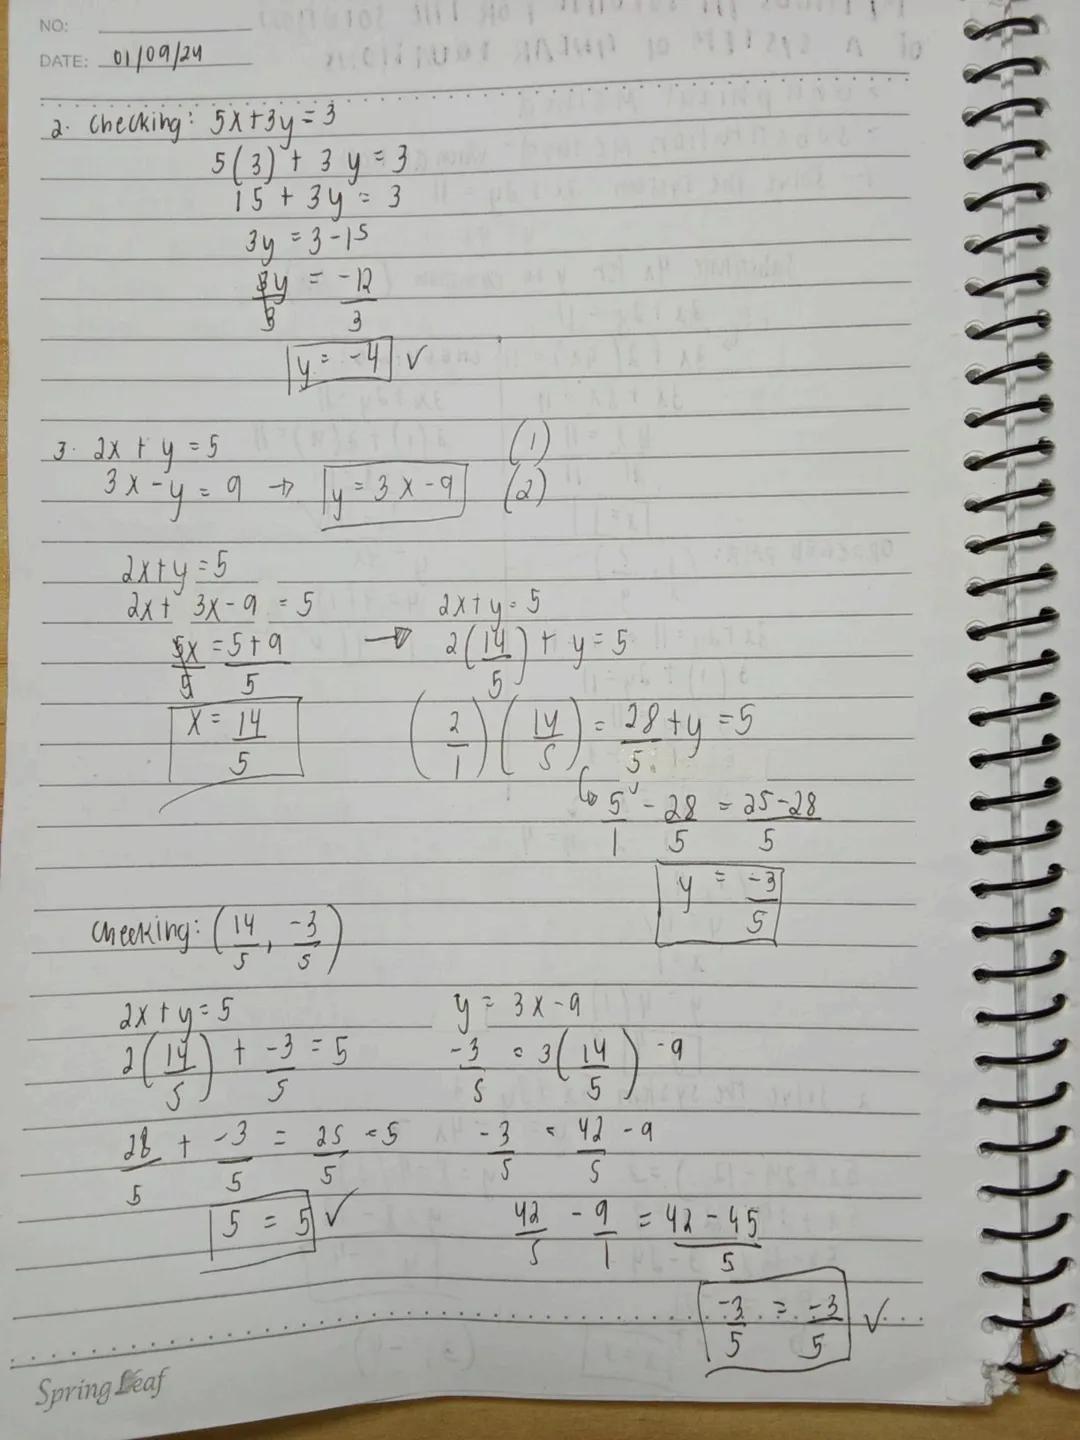 NO:
DATE: 01/09/24
2. Checking: 5x+3y=3
5(3) + 3y = 3
15 + 3y = 3
3y = 3-15
3y/3 = -12/3
y = -4 ✓
3. 2x + y = 5 (1)
3x - y = 9 → y = 3x-9 (2)
2x+y=5
2x + 3x-9 = 5
5x/5 = 5+9/5
x = 14/5
→ 2x+y=5
2(14/5) + y = 5
(2/1)(14/5) = 28/5 + y = 5
↳ 5/1 - 28/5 = 25-28/5
y = -3/5
Checking: (14/5, -3/5)
2x+y=5
2(14/5) + -3/5 = 5
28/5 + -3/5 = 25/5 = 5
5 = 5 ✓
y = 3x-9
-3/5 = 3(14/5) -9
-3/5 = 42/5 -9
42/5 - 9/1 = 42-45/5
-3/5 = -3/5 ✓
Spring Leaf